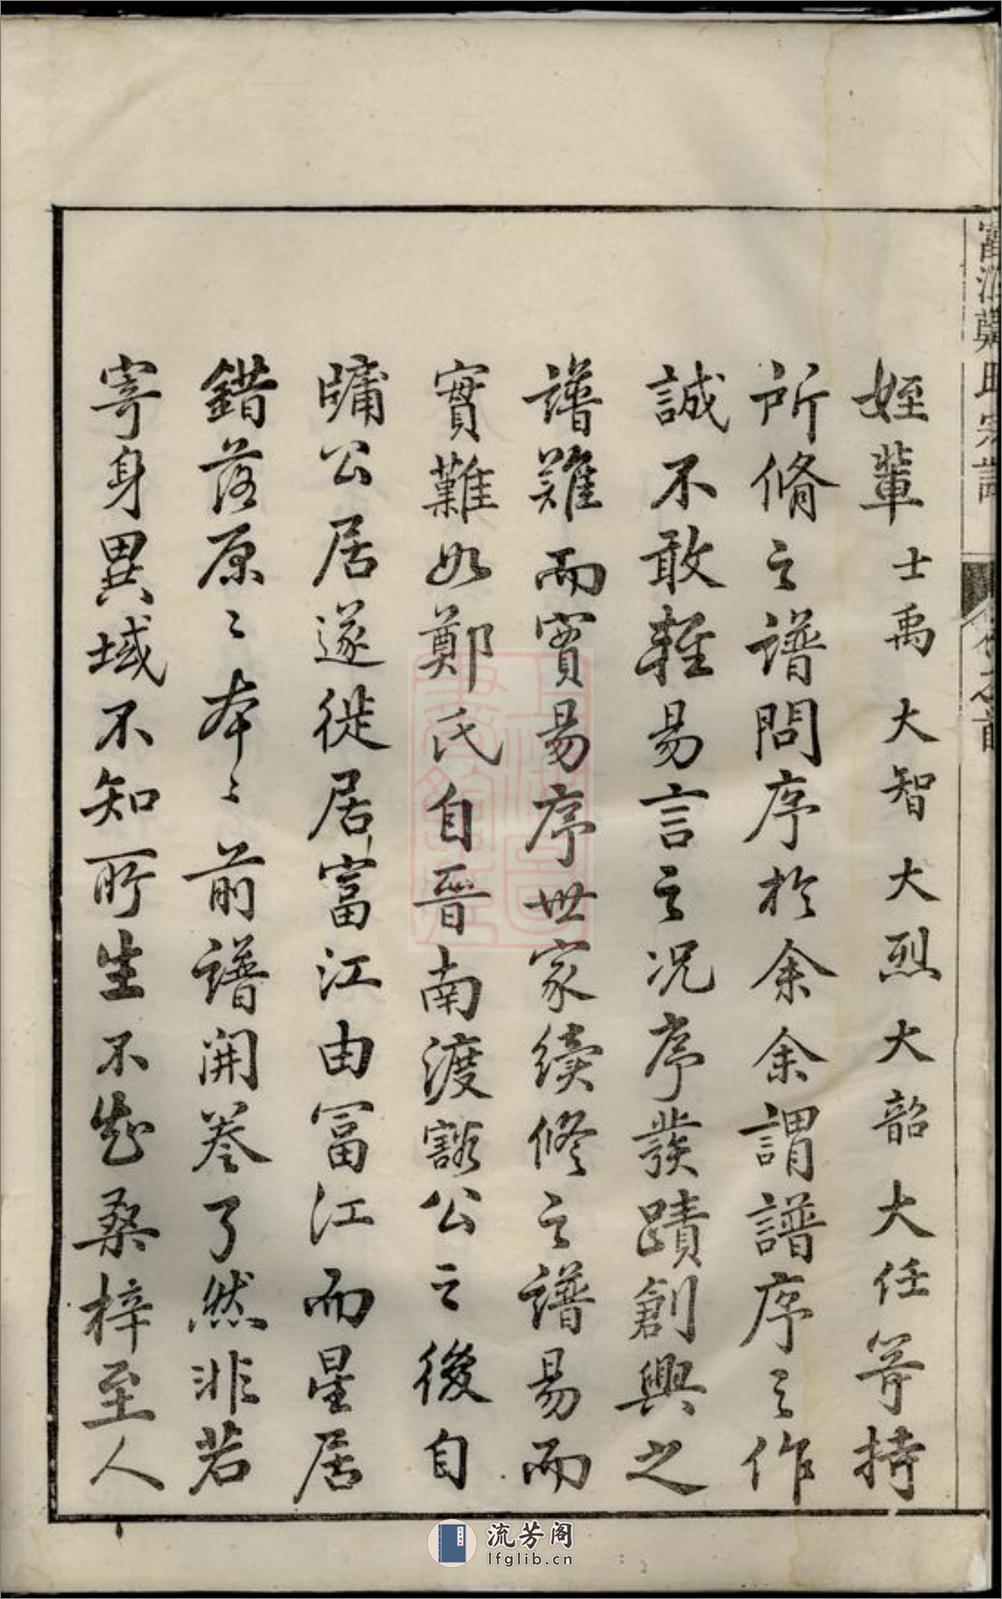 姪輩士禹大智大烈大韶大任等持
所脩之譜問序於余余謂譜序之作
誠不敢輕易言之況序發蹟創興之
譜難而實易序世家續修之譜易而
實難如鄭氏自晉南渡豁公之後自
牗公居遂徙居富江由冨江而星居
錯落原〻本〻前譜開卷了然非若
寄身異域不知所生不忘桑梓至人
鄭氏宗譜
流芳阁
lfglib.cn